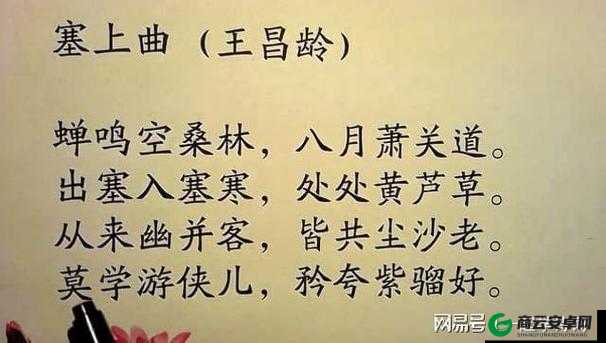 塞上曲（王昌龄）
蝉鸣空桑林，八月萧关道。
出塞入塞寒，处处黄芦草。
从来幽并客，皆共尘沙老。
莫学游侠儿，矜夸紫骝好。
网易号
商云安卓网